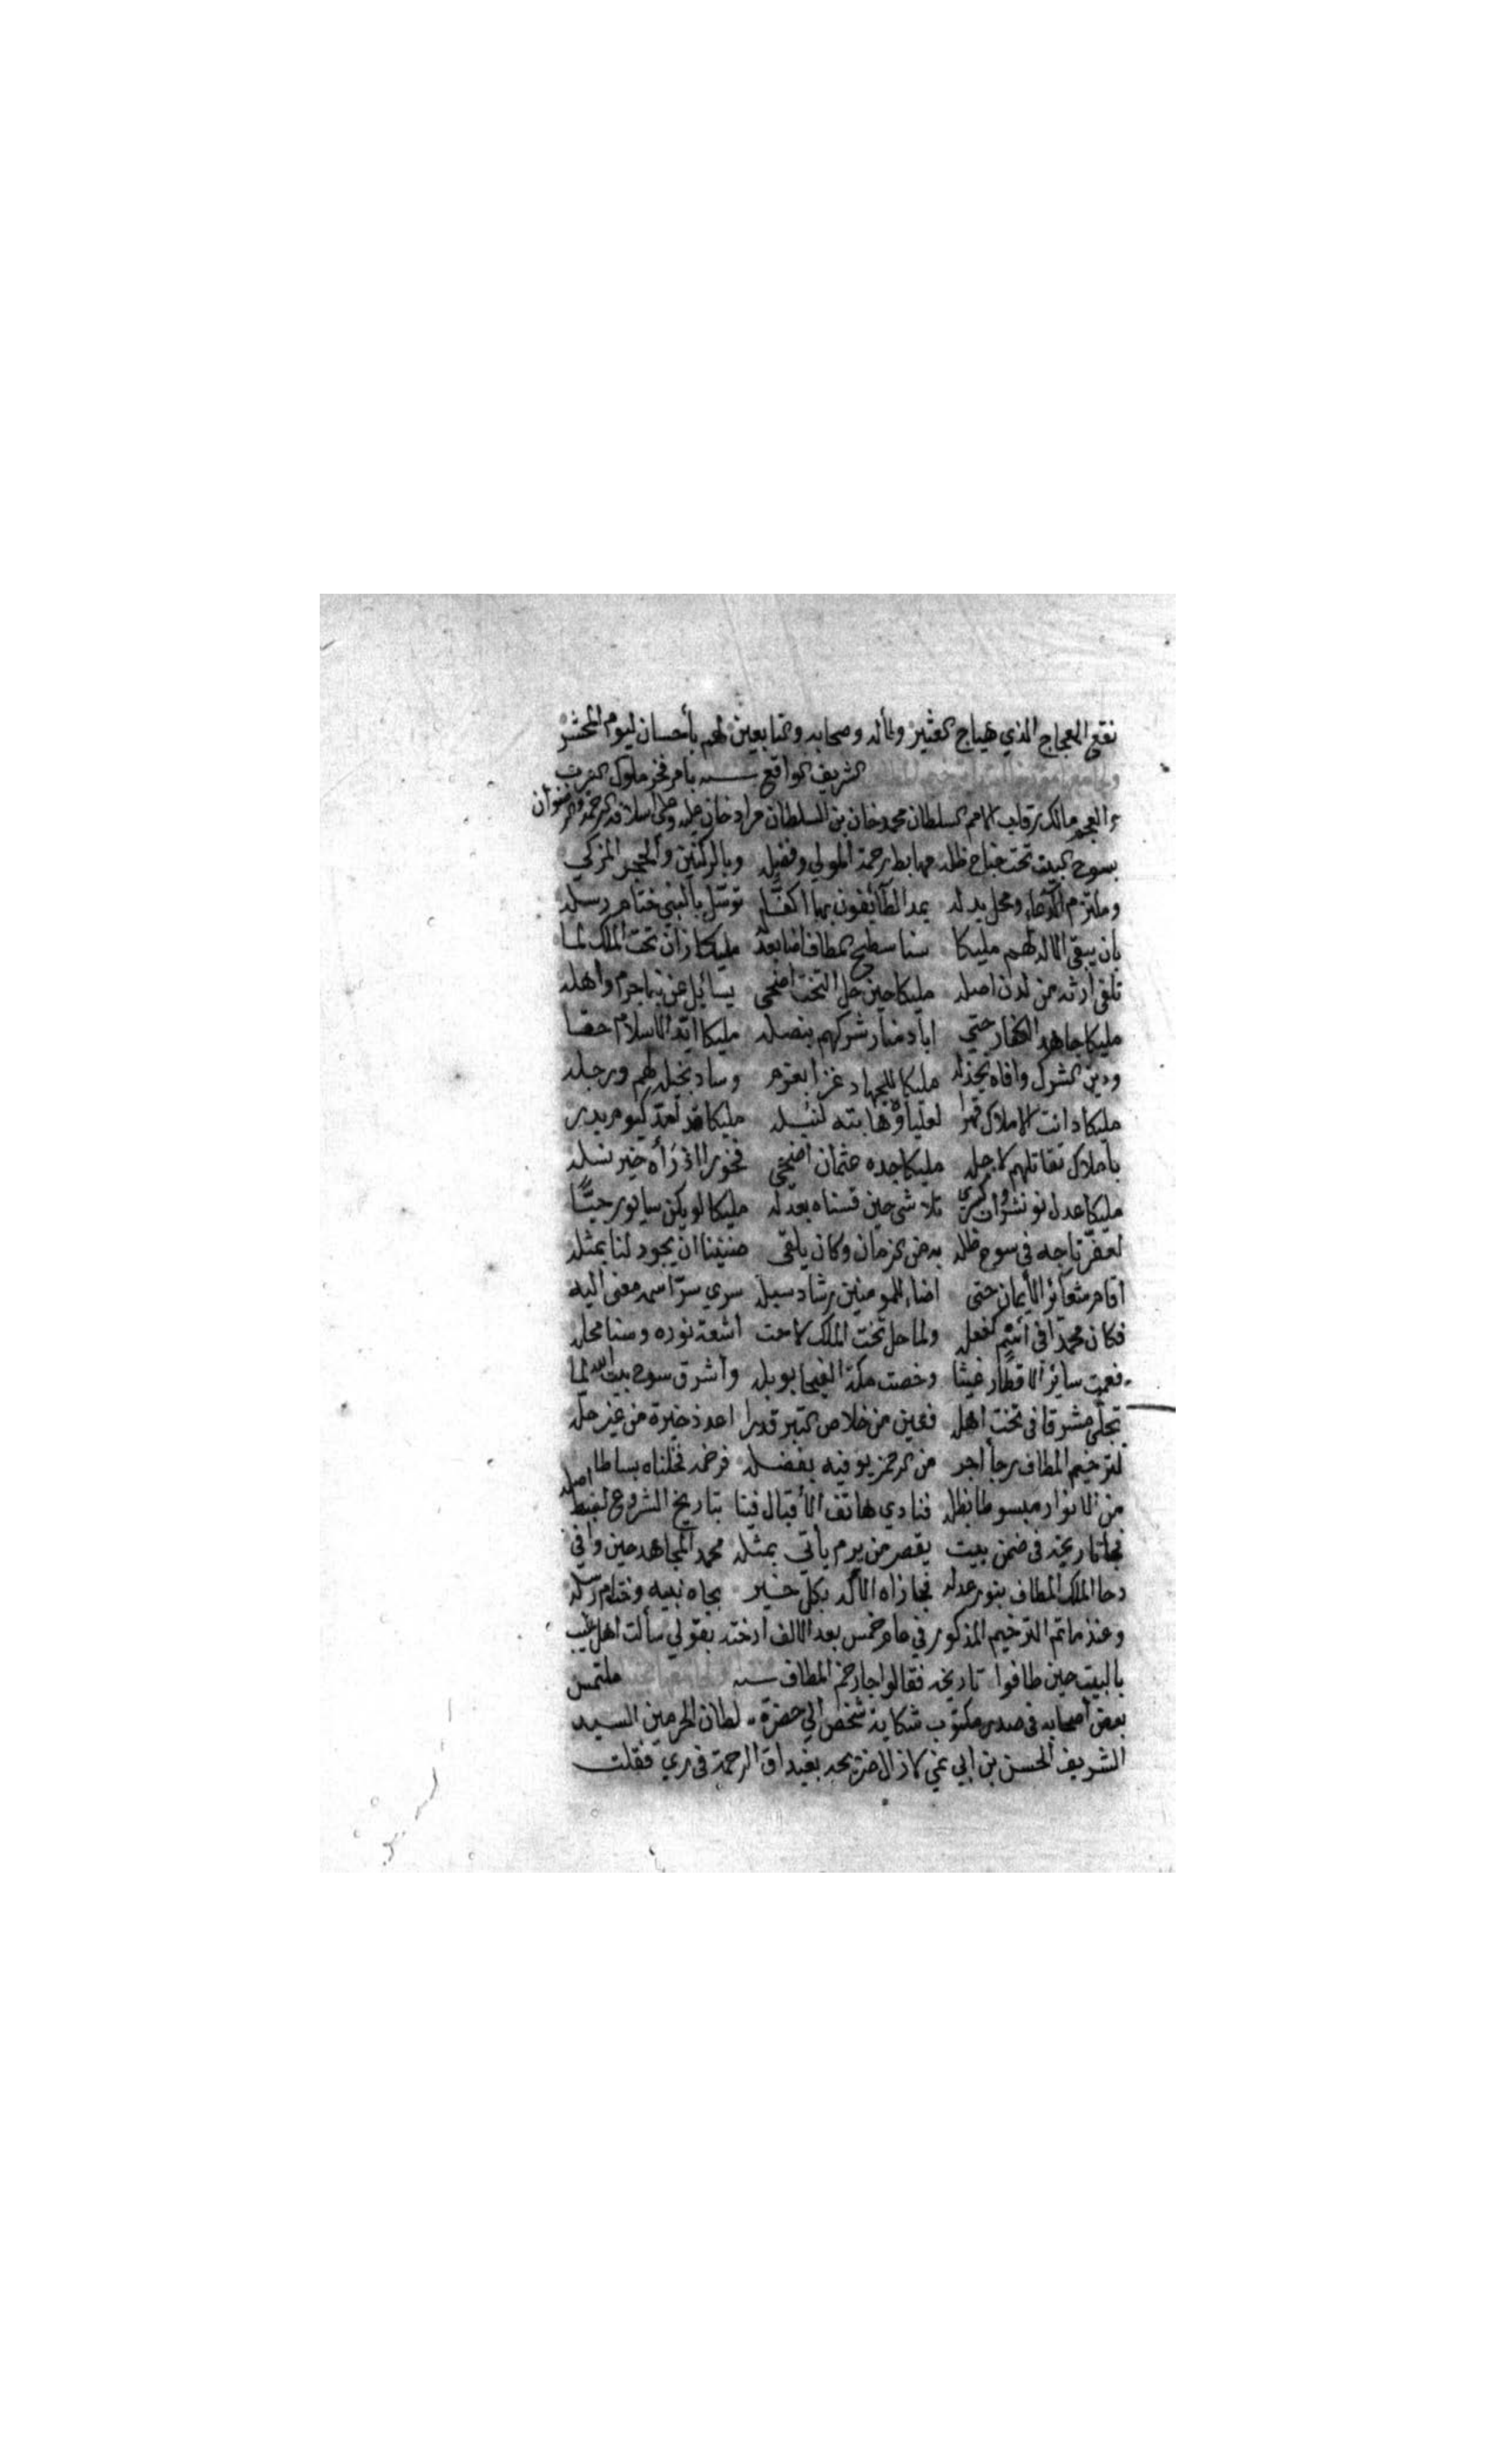 نقع العجاج الذي هياج العثير وبأله وصحابه والتابعين لهم بأحسان ليوم المحشر
الشريف الواقع بامر فخر ملوك العرب
والعجم مالك رقاب الامم السلطان محمد خان بن السلطان مراد خان عليه وعلى اسلافه الرحمة والرضوان
بسوح البيت تحت جناح ظله مهابط رحمة المولي وفضله وبالركنين والحجر المزكي
وملتزم الدعاء ومحل بدله يمد الطائفون بها اكفا توسل بالنبي ختام رسله
بان يبقي الاله لهم مليكا سنا سطيح المطاف اضا بعدله مليكا زان تخت الملك لما
تلقى ارثه من لدن اصله مليكا حين حل التخت اضحى يسائل عن بنا جرم واهله
مليكا جاهد الكفار حتي اباد منار شركهم بنصله مليكا ايد الاسلام حقا
ودين الشرك وافاه بخذله مليكا للجهاد غزا بعزم وساد بخيله لهم ورجله
مليكا دانت الاملاك قهرا لعلياه وهابته لنبله مليكا قد لعد كيوم بدر
باملاك تقاتلهم لاجله مليكا جده عثمان اضحى فخورا اذ رأه خير نسله
مليكا عدل نوشروان كسري تلاشى حين قسناه بعدله مليكا لو يكن سابور حيا
لعفر تاجه في سوح ظله به ضن الزمان وكان يلقى ضنينا ان يجود لنا بمثله
اقام شعائر الأيمان حتى اضاء للمومنين رشاد سبله سري سر اسمه معنى اليه
فكان محمدا في اسم كفعل ولما حل تخت الملك لاحت اشعة نوره وسنا محله
فعمت سائر الاقطار غيثا وخصت مكة الفيحا بوبله وأشرق سوح بيت الله لما
تجلى مشرقا في تخت اهله فعين من خلاص التبر قدرا اعد ذخيرة من غير حله
لترخيم المطاف رجأ اجر من الرحمن يوفيه بفضله فرخمه فخلناه بساطا
من الانوار مبسوطا بظله فنادي هاتف الأقبال فينا بتاريخ الشروع لضبط اصله
فجا تاريخه في ضمن بيت يقصر من يرم يأتي بمثله محمد المجاهد حين وافى
دحا الملك المطاف بنور عدله فجازاه الاله بكل خير بجاه نبيه وختام رسله
وعند ما تم الترخيم المذكور في عام خمس بعد الالف ارخته بقولي سألت اهل غيب
بالبيت حين طافوا تاريخه فقالوا جا رخم المطاف ملتمس
بعض اصحابه في صدر مكتوب شكاية شخص الي حضرة سلطان الحرمين السيد
الشريف الحسن بن ابي نمي لازال ضريحه بغيداق الرحمة في ري فقلت